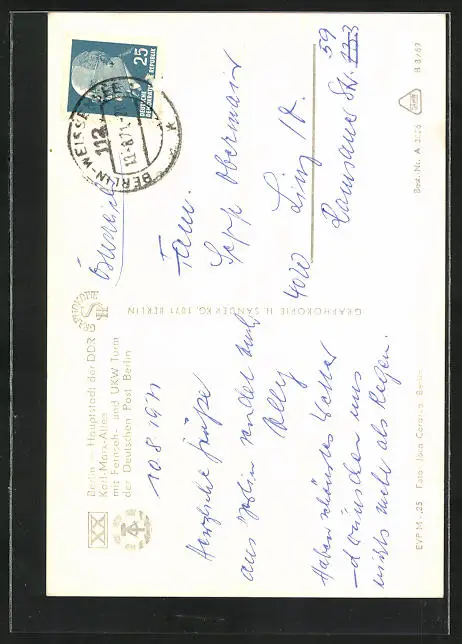 Berlin — Hauptstadt der DDR
Karl-Marx-Allee
mit Fernseh- und UKW Turm
der Deutschen Post Berlin
XX
10.8.1971
Herzliche Grüße
aus Berlin sendet euch
Haben schönstes Wetter
– d wünschen uns
nichts mehr als Regen.
EVP M -,25 Foto: Berlin
GRAPHOKOPIE H. SANDER KG, 1071 BERLIN
25
DEUTSCHE
DEMOKRATISCHE
REPUBLIK
BERLIN-WEISSENSEE
112
Österreich
Fam.
Sepp Obermair
4020 Linz / D.
Str. 133 59
Best.-Nr. A
B 8/67